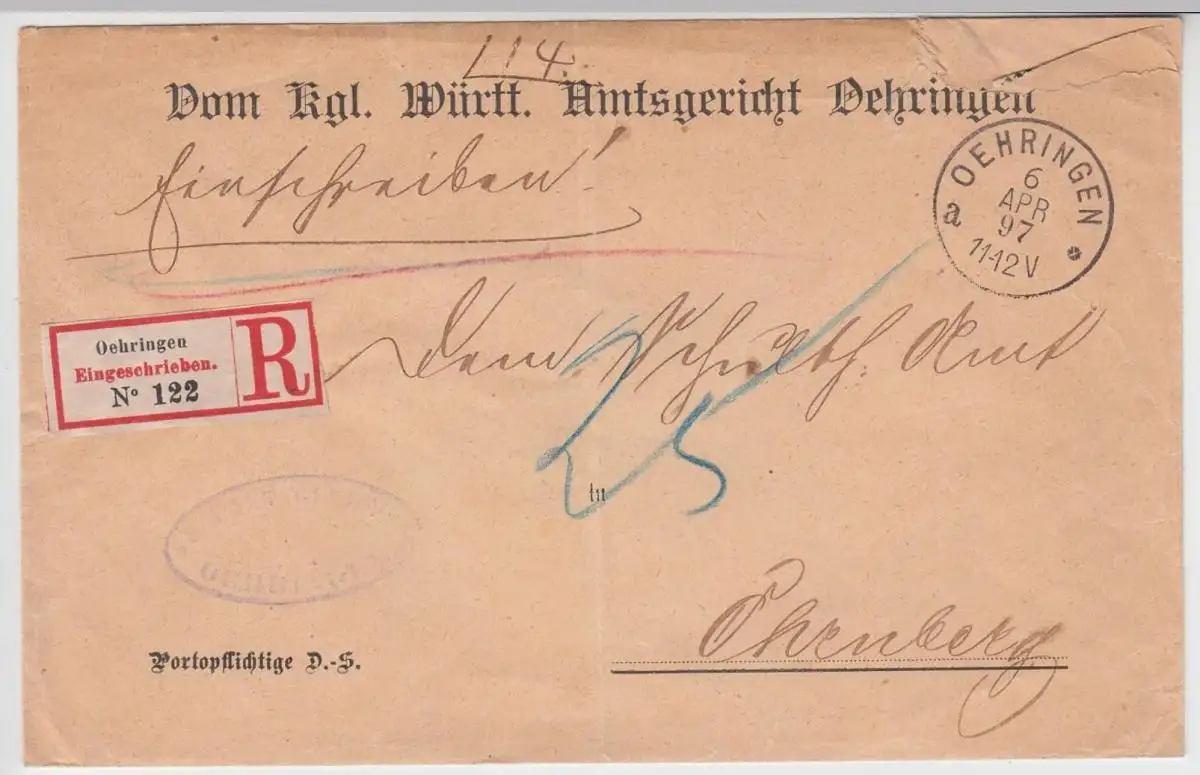 114.
Vom Kgl. Württ. Amtsgericht Oehringen
Einschreiben!
OEHRINGEN
a
6
APR
97
11-12V
Oehringen
Eingeschrieben.
No 122
R
Dem Schulth. Amt
25
in
OEHRINGEN
Ohrnberg
Portopflichtige D.-S.